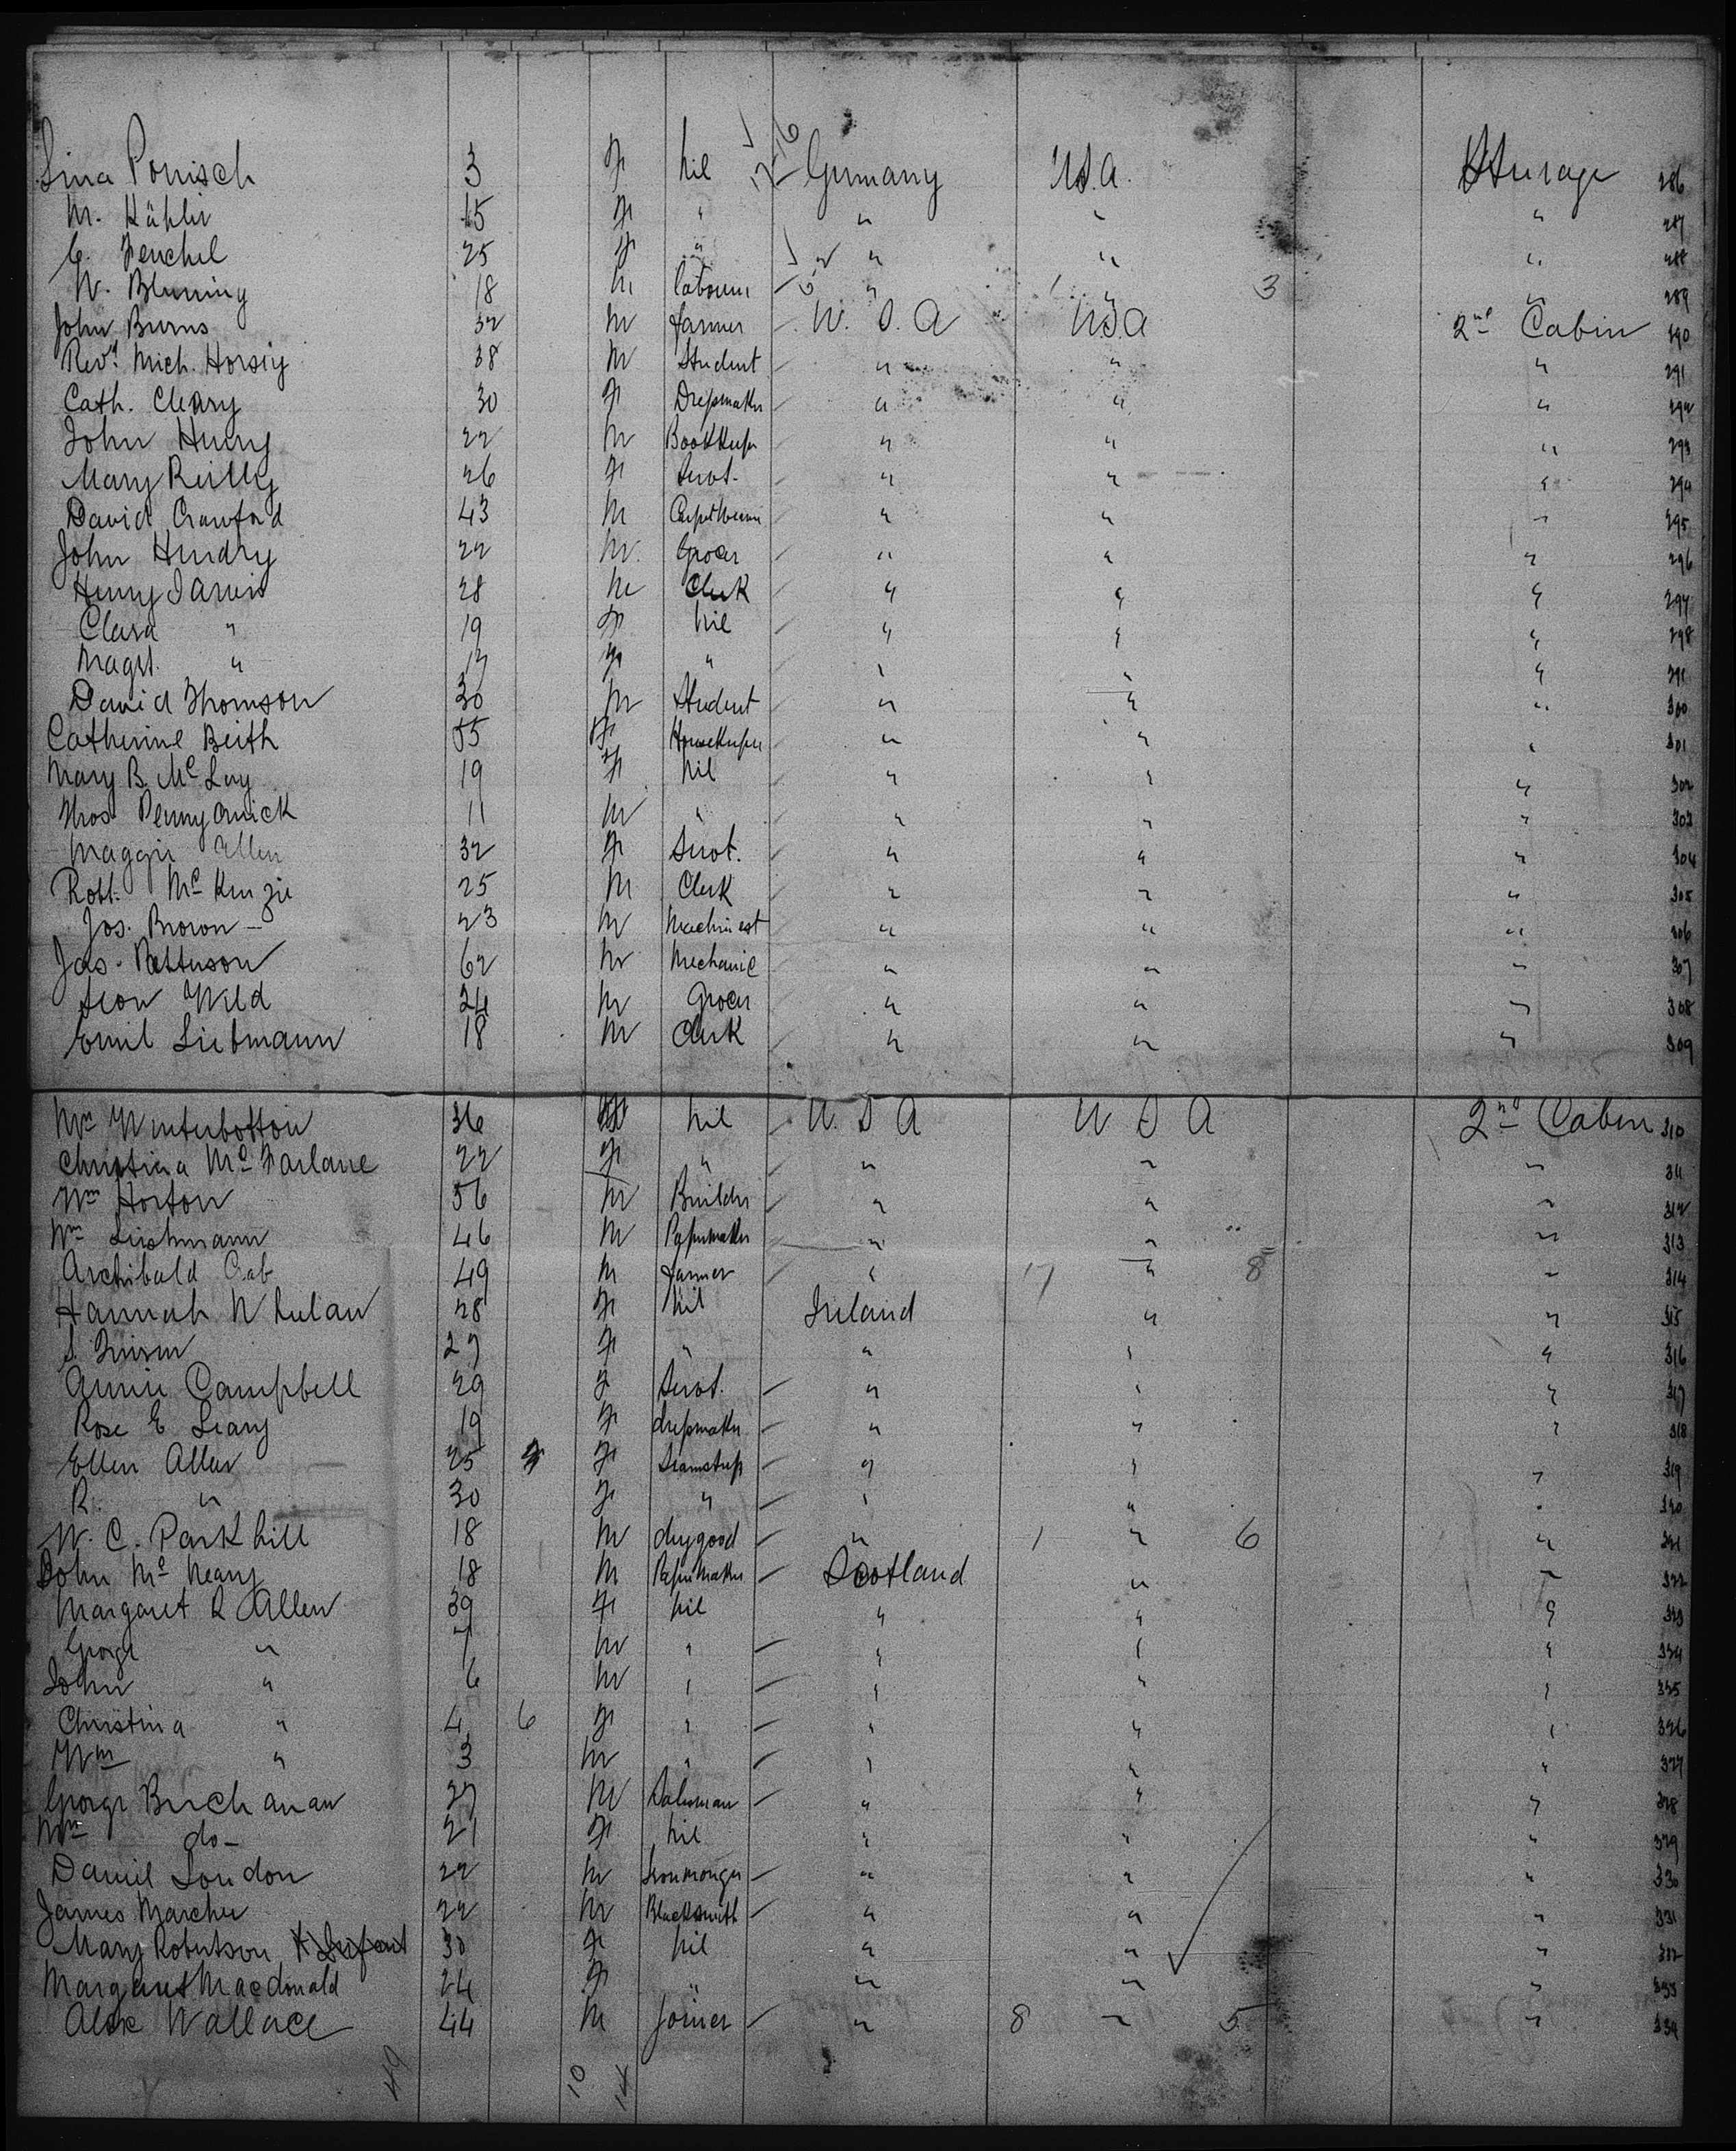 Lina Ponisch 3 F nil Germany U.S.A. Steerage 286
M. Kähler 15 F " " " " 287
C. Fenchel 25 F " " " " 288
W. 18 M labourer " " 3 " 289
John Burns 32 M farmer U.S.A U.S.A 2nd Cabin 290
Revd. Mich. Horsig 38 M Student " " " 291
Cath. Cleary 30 F Dressmaker " " " 292
John Henry 22 M Bookkeeper " " " 293
Mary Reilly 26 F Servt. " " " 294
David Crawford 43 M Carpet weaver " " " 295
John Hendry 22 M. Grocer " " " 296
Henry Jarvis 28 M Clerk " " " 297
Clara " 19 F nil " " " 298
Magrt. " 17 F " " " "
David Thomson 30 M Student " " " 300
Catherine Beith 55 F Housekeeper " " " 301
Mary B. McLay 19 F nil " " " 302
Thos Pennyquick 11 M " " " " 303
Maggie Allen 32 F Servt. " " " 304
Robt. McKenzie 25 M Clerk " " " 305
Jos. Brown 23 M Machinest " " " 306
Jas. Patterson 62 M Mechanic " " " 307
Leon Wild 24 M Grocer " " " 308
Emil Liebmann 18 M Clerk " " " 309
Winterbottom 36 nil U S A U S A 2nd Cabin 310
Christina McFarlane 22 F " " " " 311
Wm Horton 56 M Builder " " " 312
Wm Lieshmann 46 M Papermaker " " " 313
Archibald Crab 49 M farmer " 17 " 8 " 314
Hannah Whelan 28 F nil Ireland " " 315
27 F " " " " 316
Annie Campbell 29 F Servt. " " " 317
Rose E Leary 19 F dressmaker " " " 318
Ellen Allen 25 F Seamstress " " " 319
R. " 30 F " " " " 320
W. C. Parkhill 18 M drygood " 1 " 6 " 321
John McNeany 18 M Papermaker Scotland " " 322
Margaret R Allen 39 F nil " " " 323
George " 7 M " " " " 324
John " 6 M " " " " 325
Christina " 4 6 F " " " " 326
Wm " 3 M " " " " 327
George Buchanan 27 M Salesman " " " 328
do- 21 F nil " " " 329
Daniel London 22 M Ironmonger " " " 330
James Marcher 22 M Blacksmith " " " 331
Mary Robertson & Infant 30 F nil " " " 332
Margaret Macdonald 24 F " " " " 333
Alex Wallace 44 M Joiner " 8 " 5 " 334
49 10 14